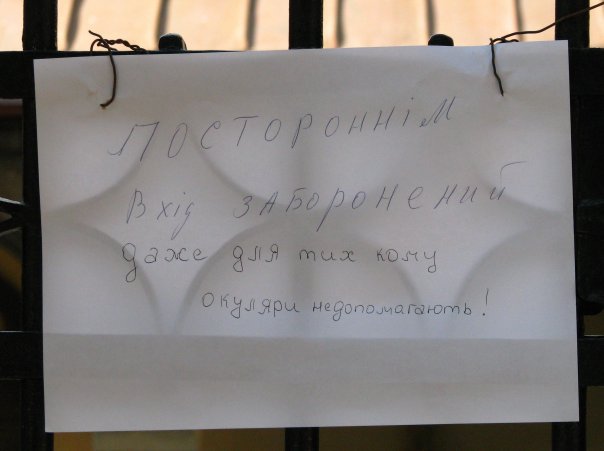 Постороннім
Вхід заборонений
даже для тих кому
окуляри недопомагають!